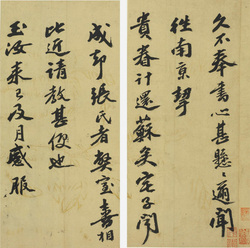 久不奉書心甚懸懸適聞
往南京挈
貴眷計還蘇矣定子聞
成却張氏者整室毒相
比近請教甚便也
玉汝来已及月感服